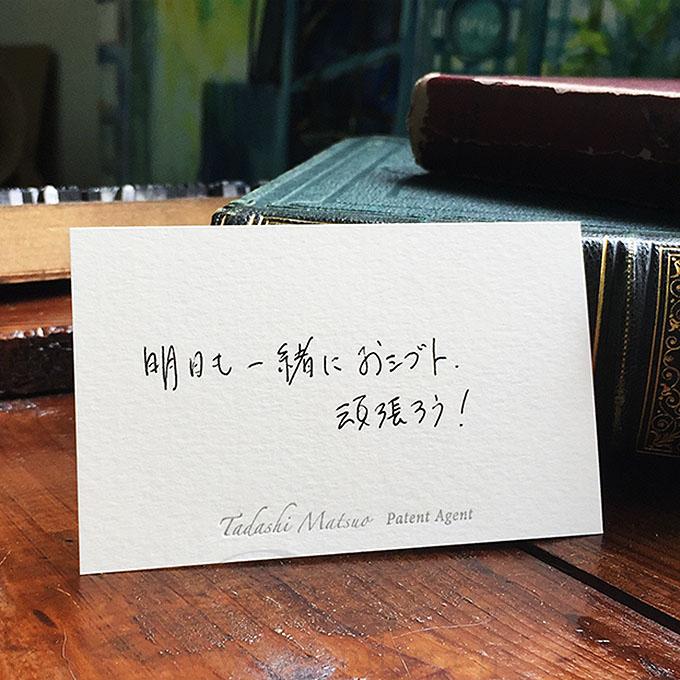 明日も一緒におシゴト.
頑張ろう!
Tadashi Matsuo Patent Agent